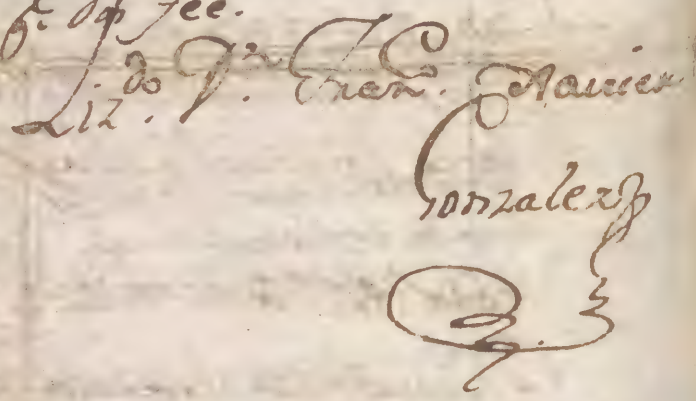 qe. doy fee.
Liz.do D.n Fran.co Xauier
Gonzalez